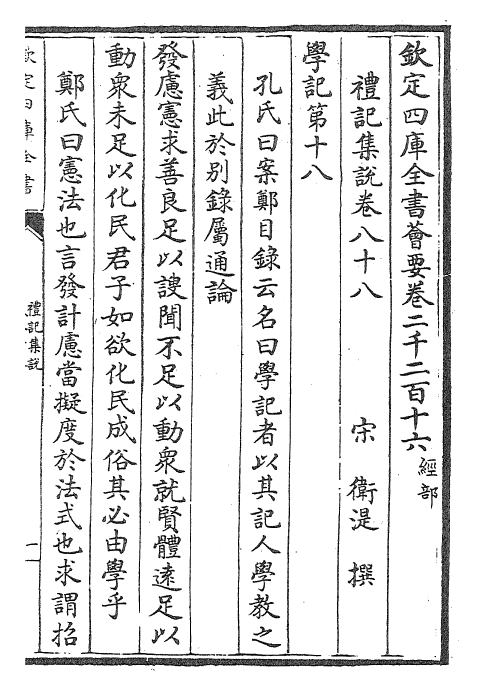 欽定四庫全書薈要卷二千二百十六經部
禮記集說卷八十八 宋 衛湜 撰
學記第十八
孔氏曰案鄭目錄云名曰學記者以其記人學教之
義此於別錄屬通論
發慮憲求善良足以謏聞不足以動衆就賢體逺足以
動衆未足以化民君子如欲化民成俗其必由學乎
鄭氏曰憲法也言發計慮當擬度於法式也求謂招
欽定四庫全書
禮記集說
一